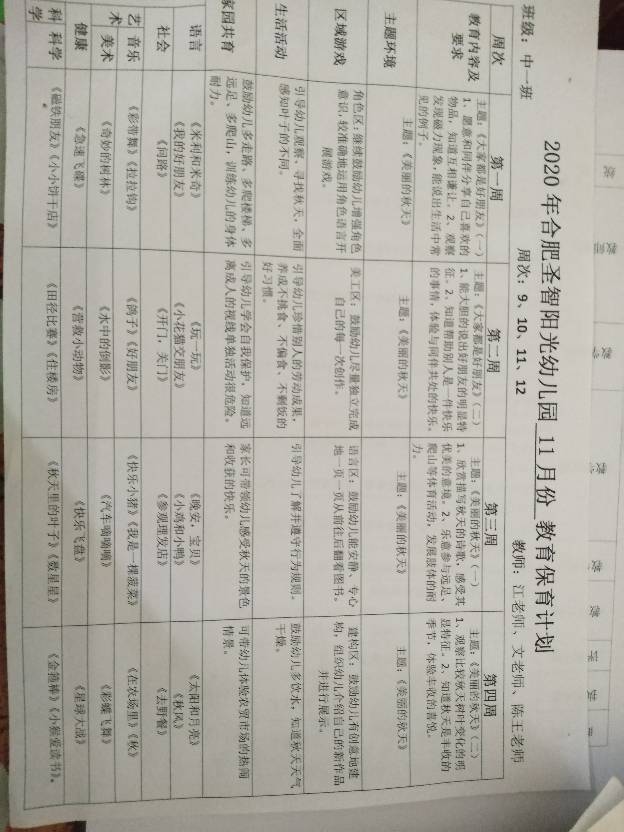 2020 年合肥圣智阳光幼儿园 11 月份 教育保育计划
班级：中一班
周次：9、10、11、12
教师：江老师、文老师、陈王老师
周次
第一周
第二周
第三周
第四周
教育内容及
要求
主题：《大家都是好朋友》（一）
1、愿意和同伴分享自己喜欢的
物品，知道互相谦让。2、观察
发现磁力现象，能说出生活中常
见的例子。
主题：《大家都是好朋友》（二）
1、能大胆的说出好朋友的明显特
征。2、知道帮助别人是一件快乐
的事情，体验与同伴共处的快乐。
主题：《美丽的秋天》（一）
1、欣赏描写秋天的诗歌，感受其
优美的意境。2、乐意参与远足、
爬山等体育活动，发展肢体的耐
力。
主题：《美丽的秋天》（二）
1、观察比较秋天树叶变化的明
显特征。2、知道秋天是丰收的
季节，体验丰收的喜悦。
主题环境
主题：《美丽的秋天》
主题：《美丽的秋天》
主题：《美丽的秋天》
主题：《美丽的秋天》
区域游戏
角色区：继续鼓励幼儿增强角色
意识，较准确地运用角色语言开
展游戏。
美工区：鼓励幼儿尽量独立完成
自己的每一次创作。
语言区：鼓励幼儿能安静、专心
地一页一页从前往后翻看图书。
建构区：鼓励幼儿有创意地建
构，组织幼儿介绍自己的新作品
并进行展示。
生活活动
引导幼儿观察、寻找秋天，全面
感知叶子的不同。
引导幼儿珍惜别人的劳动成果，
养成不挑食、不偏食、不剩饭的
好习惯。
引导幼儿了解并遵守行为规则。
鼓励幼儿多饮水，知道秋天天气
干燥。
家园共育
鼓励幼儿多走路、多爬楼梯、多
远足、多爬山，训练幼儿的身体
耐力。
引导幼儿学会自我保护，知道远
离成人的视线单独活动很危险。
家长可带领幼儿感受秋天的景色
和收获的快乐。
可带幼儿体验农贸市场的热闹
情景。
语言
《米利和米奇》
《我的好朋友》
《玩一玩》
《小花猫交朋友》
《晚安，宝贝》
《小鸡和小鸭》
《太阳和月亮》
《秋风》
社会
《问路》
《开门，关门》
《参观理发店》
《去野餐》
艺 音乐
《彩带舞》《拉拉钩》
《鸽子》《好朋友》
《快乐小猪》《我是一棵菠菜》
《在农场里》《秋》
术 美术
《奇妙的树林》
《水中的倒影》
《汽车嘀嘀嘀》
《彩蝶飞舞》
健康
《急速飞碟》
《营救小动物》
《快乐飞盘》
《星球大战》
科 科学
学
《磁铁朋友》《小小饼干店》
《田径比赛》《住楼房》
《秋天里的叶子》《数星星》
《金箍棒》《小熊爱读书》。